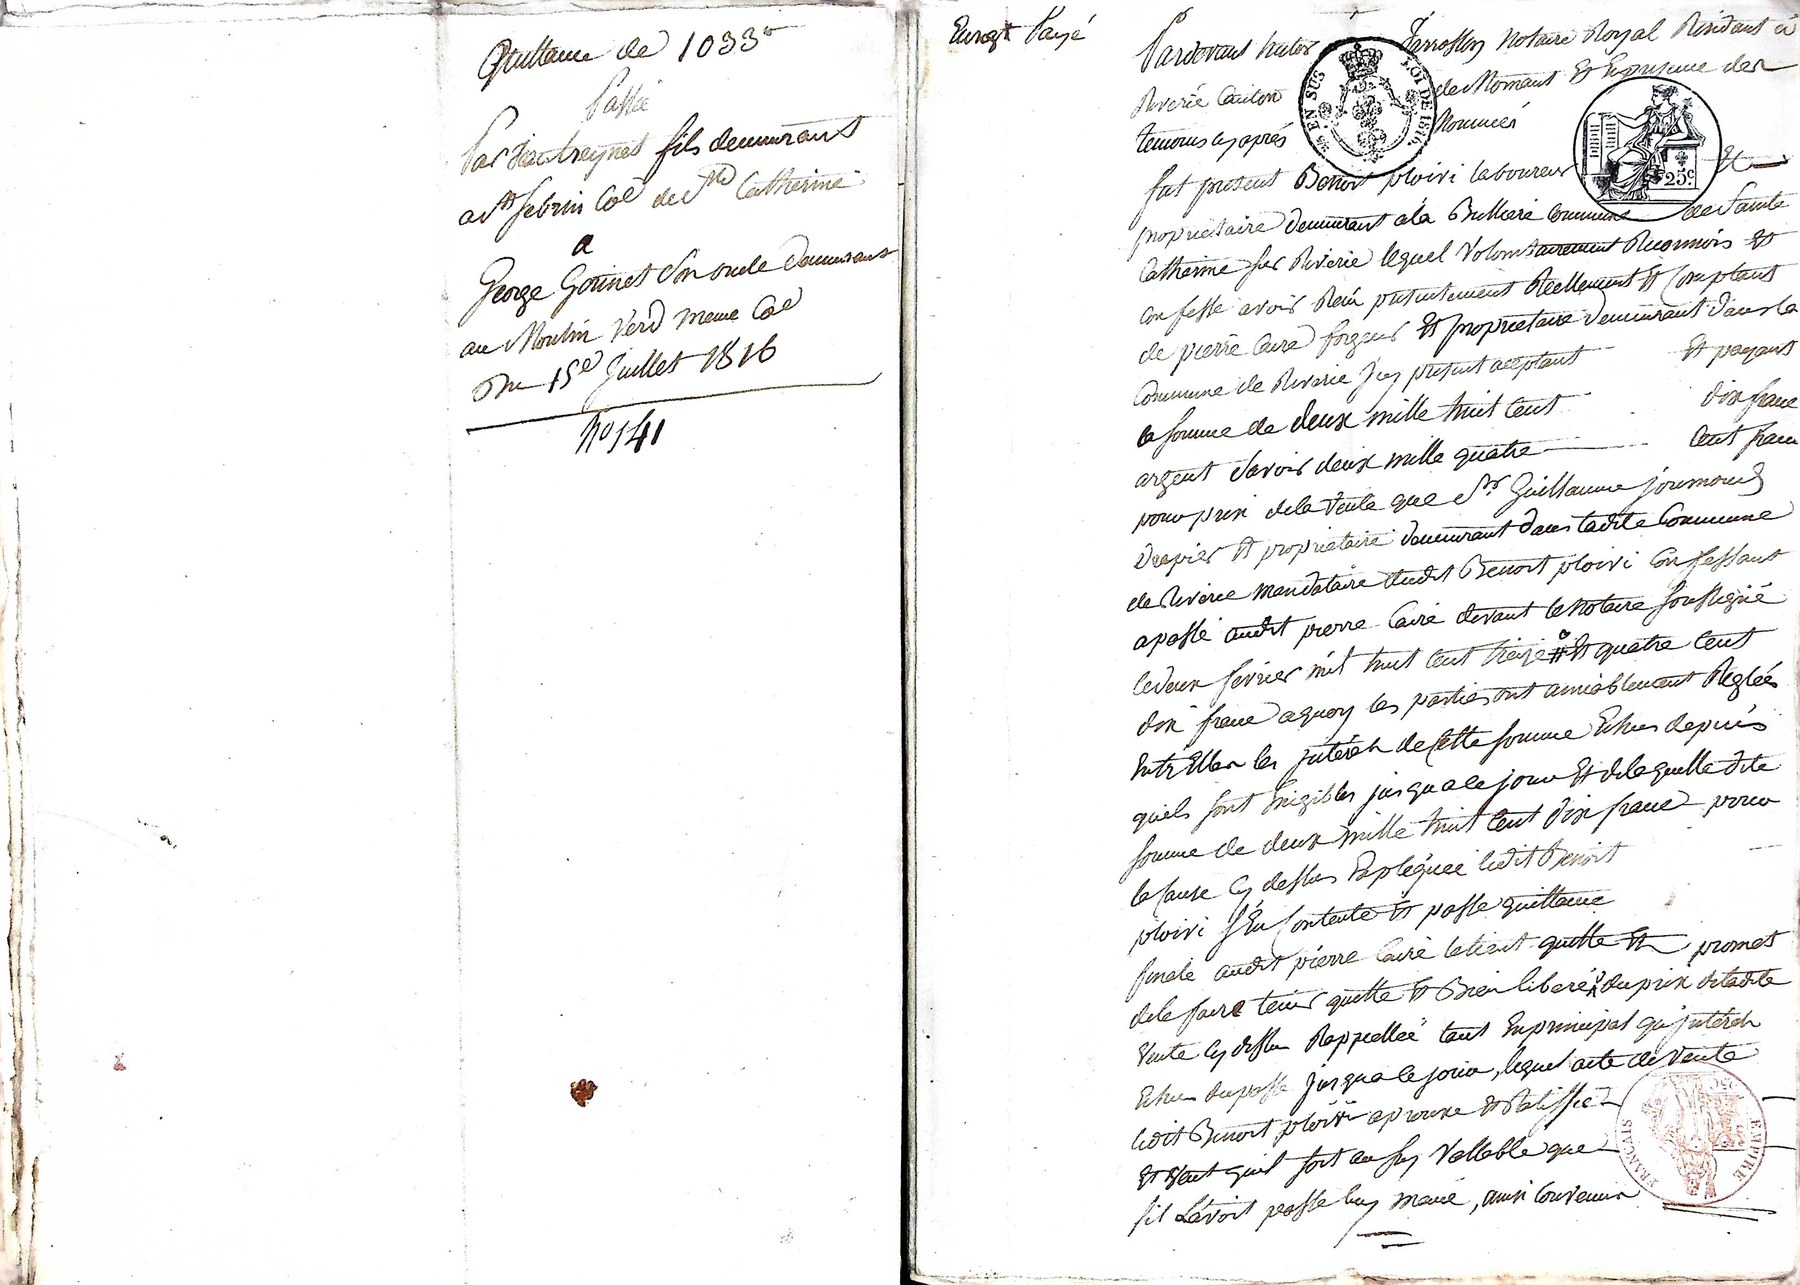 Quittance de 1033 fr
Passée
Par fils demeurant
a St Sebrin Coe de Ste Catherine
a
George Gorinet son oncle demeurant
au Moulin Verd meme Coe
Du 15e Juillet 1816
No 141
Enregt Payé
Pardevant Notaire Royal Residant à
Riverie Canton de Mornant Et En presence des
temoins cy après Nommés
fut present Benoit ploivi laboureur Et
proprietaire demeurant a la Bulliere Commune de Sainte
Catherine sur Riverie lequel Volontairement Reconnois Et
Confesse avoir Reçu presentement Réellement Et Comptant
de pierre Caire forgeur Et proprietaire demeurant dans la
Commune de Riverie Icy present aceptant Et payant
la somme de deux mille huit Cent dix franc
argent savoir deux mille quatre Cent franc
pour prix de la Vente que Sr Guillaume journoud
drapier Et proprietaire demeurant dans ladite Commune
de Riverie mandataire dudit Benoit ploivi Confessant
a passé audit pierre Caire devant le Notaire soussigné
le deux fevrier mil huit Cent treize Et quatre Cent
dix franc a quoy les parties ont amiablement Reglés
Entr Elles les jnterets de Cette somme Echus depuis
quels sont Exigibles jusqua ce jour Et de laquelle dite
somme de deux mille huit Cent dix franc pour
la Cause Cy dessus Expliquée ledit Benoit
ploivi s'En Contente Et passe quittance
finale audit pierre Caire le tient quitte Et promet
de le faire tenir quitte Et Bien liberé du prix de ladite
Vente Cy dessus Rappellée tant En principal qu'jnterets
Echus du passé jusqua ce jour, lequel acte de Vente
ledit Benoit ploivi aprouve Et Ratiffie
Et Veut quil soit au sy Vallable que
sil L'avoit passé luy meme, ainsi Convenu
EN SUS
ROI DE 1816
25 c
EMPIRE
FRANÇAIS